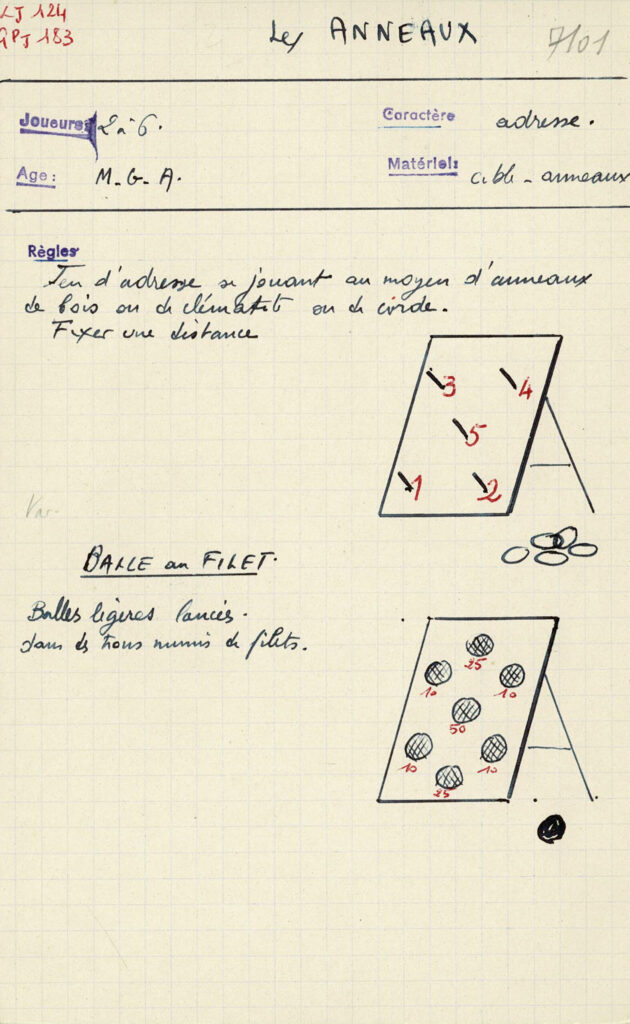 LJ 124
GPJ 183
Les ANNEAUX
7101
Joueurs: 2 à 6.
Caractère adresse.
Age: M-G-A.
Matériel: cible - anneaux
Règles
Jeu d'adresse se jouant au moyen d'anneaux
de bois ou de clématite ou de corde.
Fixer une distance
3 4
5
1 2
Var.
BALLE au FILET.
Balles légères lancées.
dans des trous munis de filets.
25
10 10
50
10 10
25